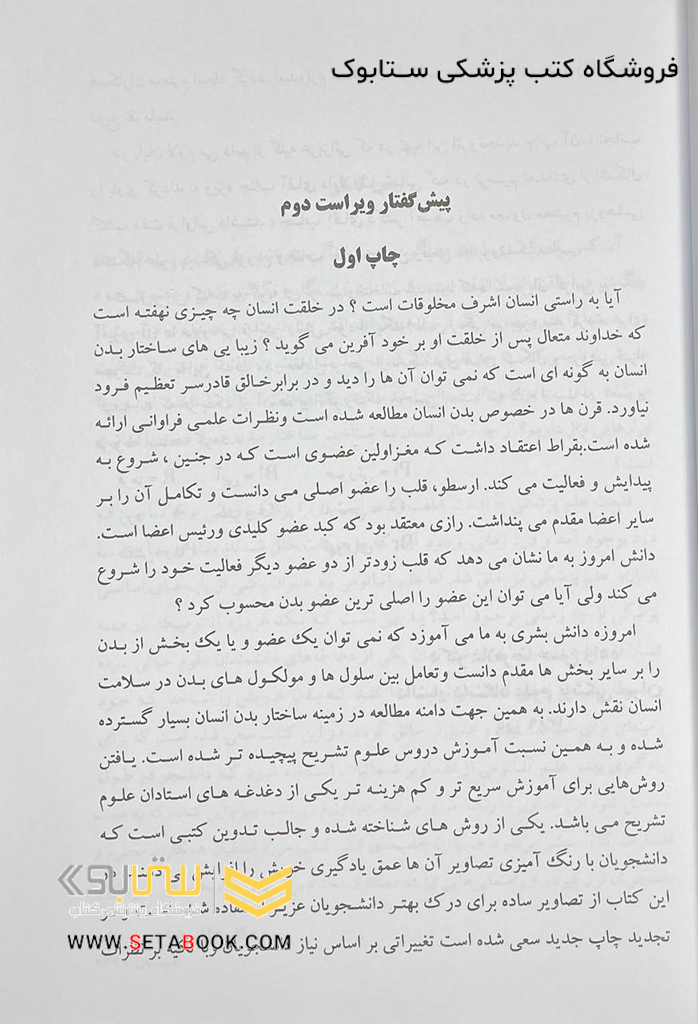 فروشگاه کتب پزشکی ستابوک
پیش‌گفتار ویراست دوم
چاپ اول
آیا به راستی انسان اشرف مخلوقات است ؟ در خلقت انسان چه چیزی نهفته است
که خداوند متعال پس از خلقت او بر خود آفرین می گوید ؟ زیبا یی های ساختار بدن
انسان به گونه ای است که نمی توان آن ها را دید و در برابرخالق قادرسر تعظیم فرود
نیاورد. قرن ها در خصوص بدن انسان مطالعه شده است ونظرات علمی فراوانی ارائه
شده است.بقراط اعتقاد داشت که مغزاولین عضوی است که در جنین ، شروع به
پیدایش و فعالیت می کند. ارسطو، قلب را عضو اصلی می دانست و تکامل آن را بر
سایر اعضا مقدم می پنداشت. رازی معتقد بود که کبد عضو کلیدی ورئیس اعضا است.
دانش امروز به ما نشان می دهد که قلب زودتر از دو عضو دیگر فعالیت خود را شروع
می کند ولی آیا می توان این عضو را اصلی ترین عضو بدن محسوب کرد ؟
امروزه دانش بشری به ما می آموزد که نمی توان یک عضو و یا یک بخش از بدن
را بر سایر بخش ها مقدم دانست وتعامل بین سلول ها و مولکول های بدن در سلامت
انسان نقش دارند. به همین جهت دامنه مطالعه در زمینه ساختار بدن انسان بسیار گسترده
شده و به همین نسبت آموزش دروس علوم تشریح پیچیده تر شده است. یافتن
روش‌هایی برای آموزش سریع تر و کم هزینه تر یکی از دغدغه های استادان علوم
تشریح می باشد. یکی از روش های شناخته شده و جالب تدوین کتبی است که
دانشجویان با رنگ آمیزی تصاویر آن ها عمق یادگیری خویش را افزایش می دهند. در
این کتاب از تصاویر ساده برای درک بهتر دانشجویان عزیز استفاده شده
تجدید چاپ جدید سعی شده است تغییراتی بر اساس نیاز دانشجویان وبا تکیه بر نظرات
ستابوک
فروشگاه اینترنتی کتاب
WWW.SETABOOK.COM